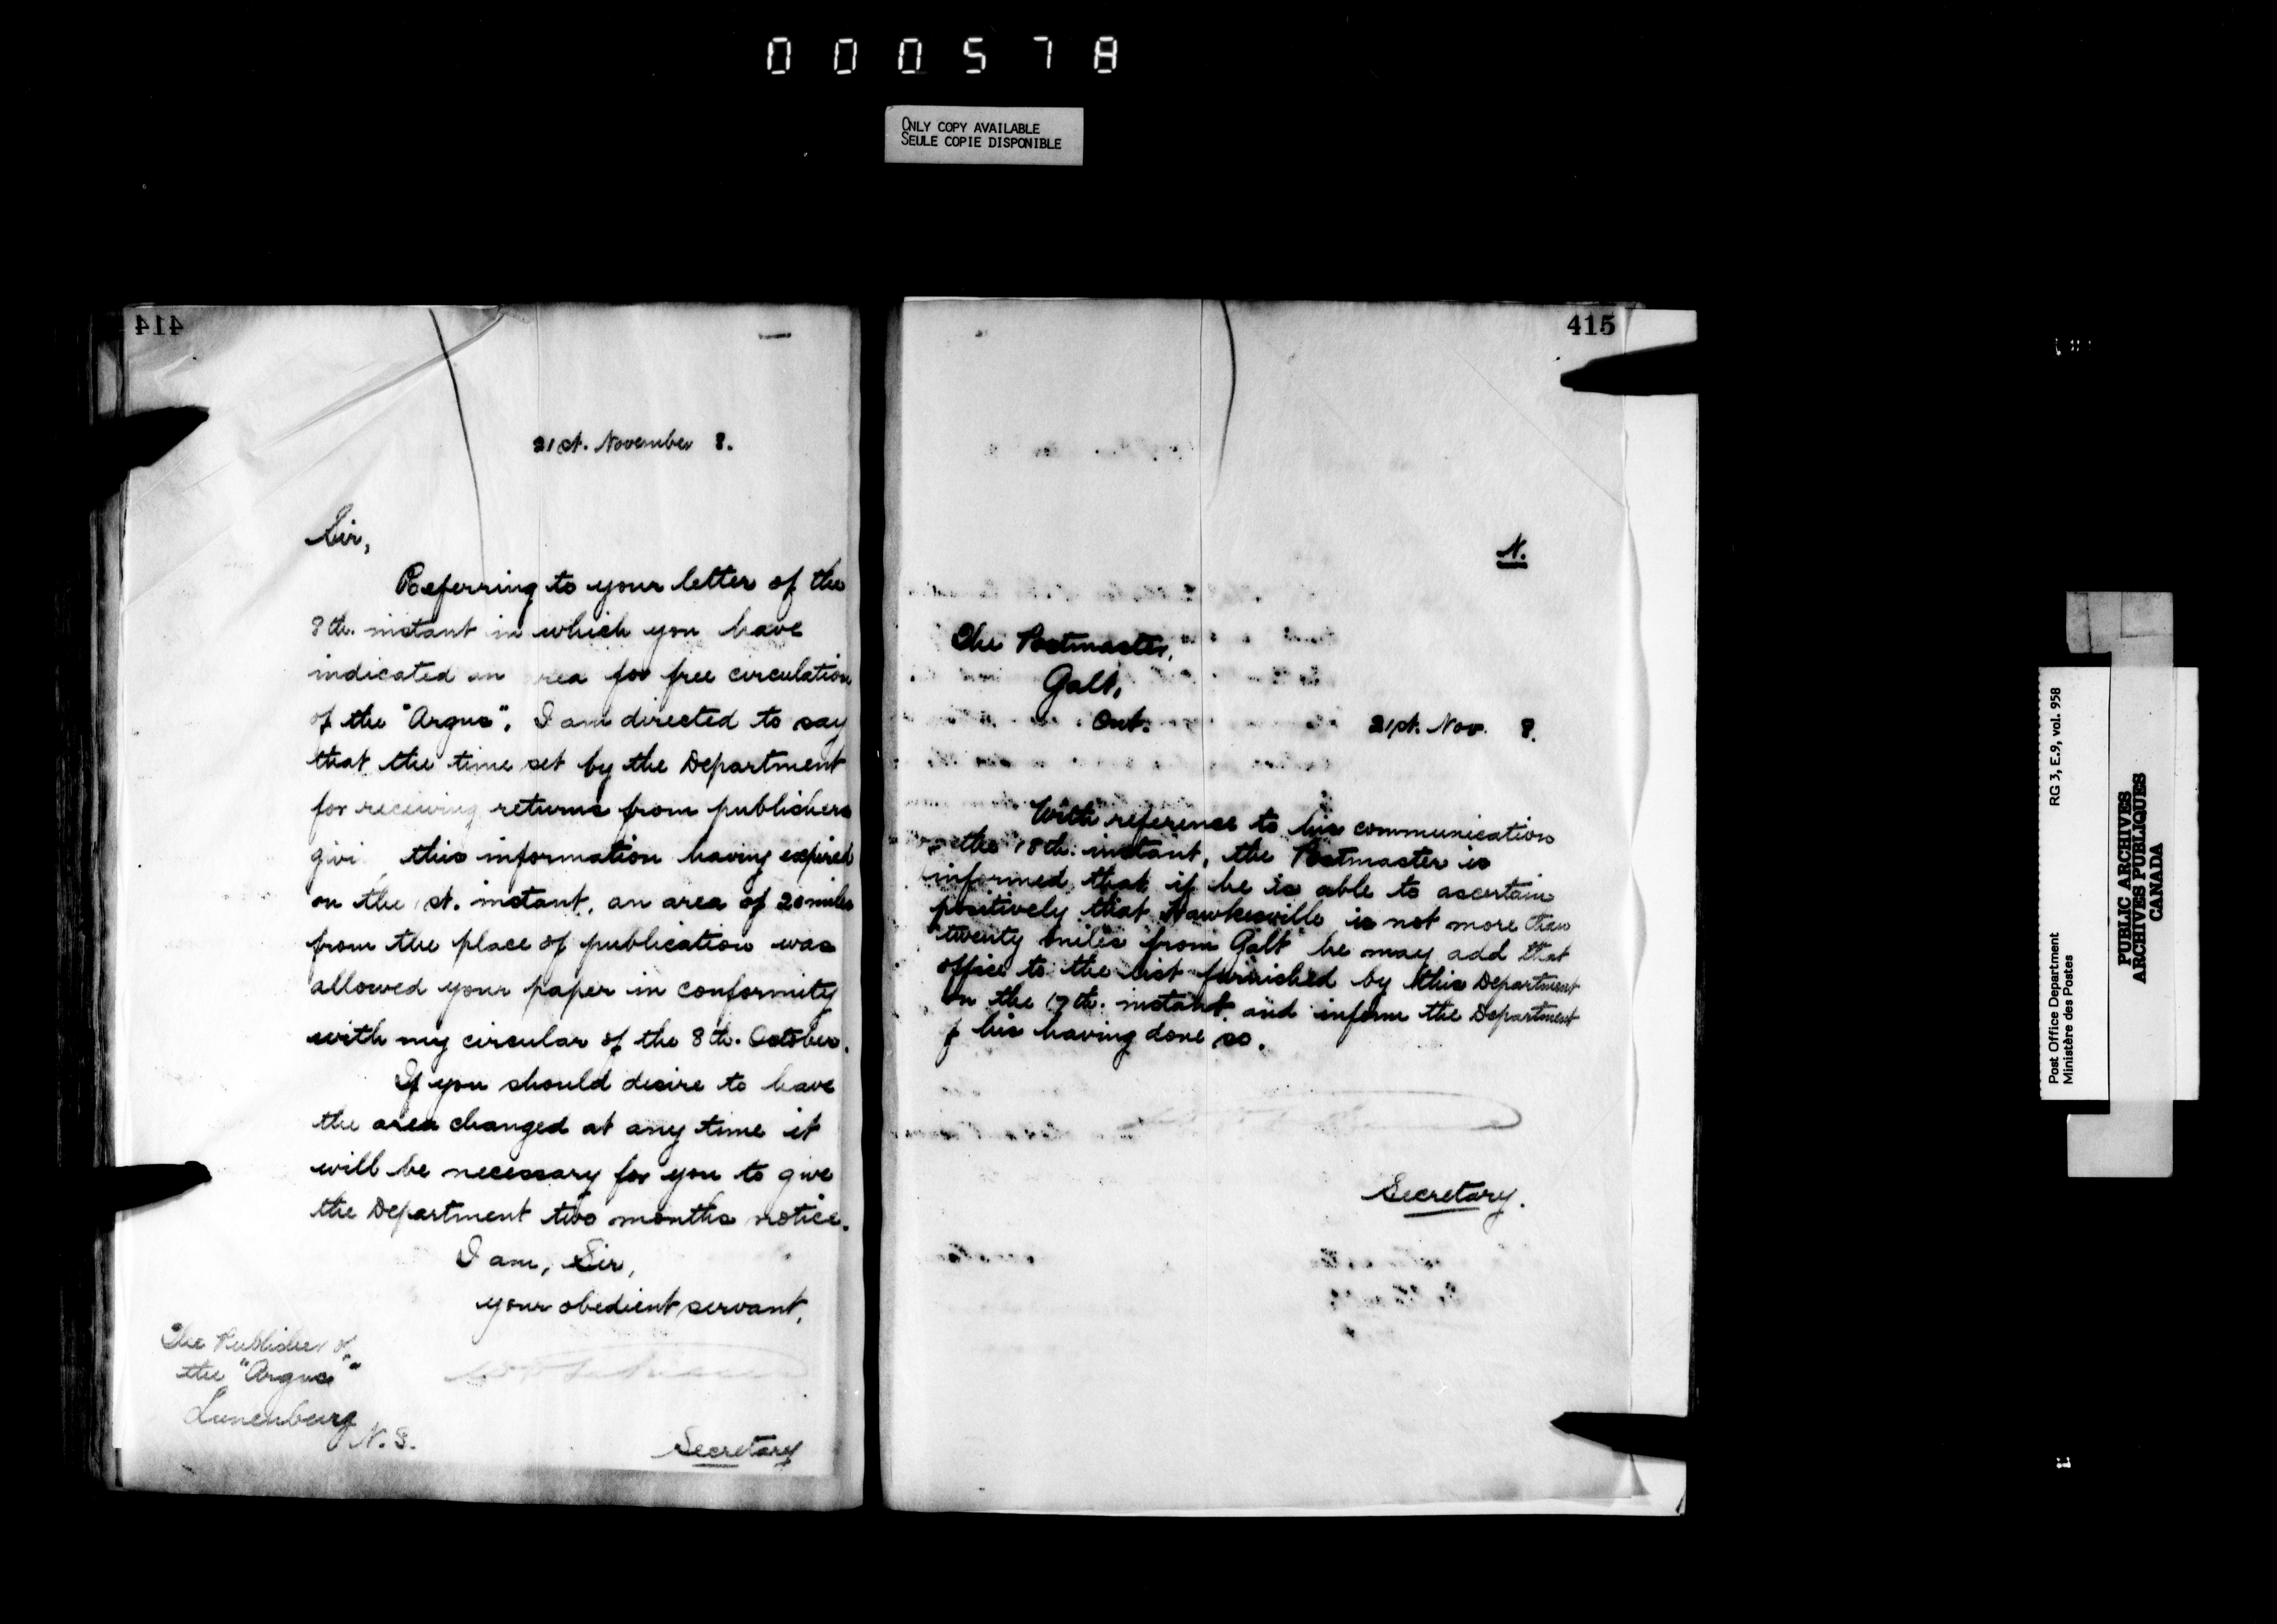 000578
ONLY COPY AVAILABLE
SEULE COPIE DISPONIBLE
414
21st. November 8.
Sir,
Referring to your letter of the
8th. instant in which you have
indicated an rea for free circulation
of the "Argus". I am directed to say
that the time set by the Department
for receiving returns from publishers
givi this information having expired
on the 1st. instant, an area of 20 miles
from the place of publication was
allowed your paper in conformity
with my circular of the 8th. October.
If you should desire to have
the area changed at any time it
will be necessary for you to give
the Department two months notice.
I am, Sir,
your obedient servant,
The Publisher of
the "Argus"
Lunenburg
N.S.
Secretary
415
N.
The Postmaster,
Galt,
Ont.
21st. Nov. 8.
With reference to his communication
the 18th. instant, the Postmaster is
informed that if he is able to ascertain
positively that Hawkesville is not more than
twenty miles from Galt he may add that
office to the list furnished by this Department
on the 17th. instant and inform the Department
of his having done so.
Secretary.
Post Office Department
Ministère des Postes
RG 3, E.9, vol. 958
PUBLIC ARCHIVES
ARCHIVES PUBLIQUES
CANADA